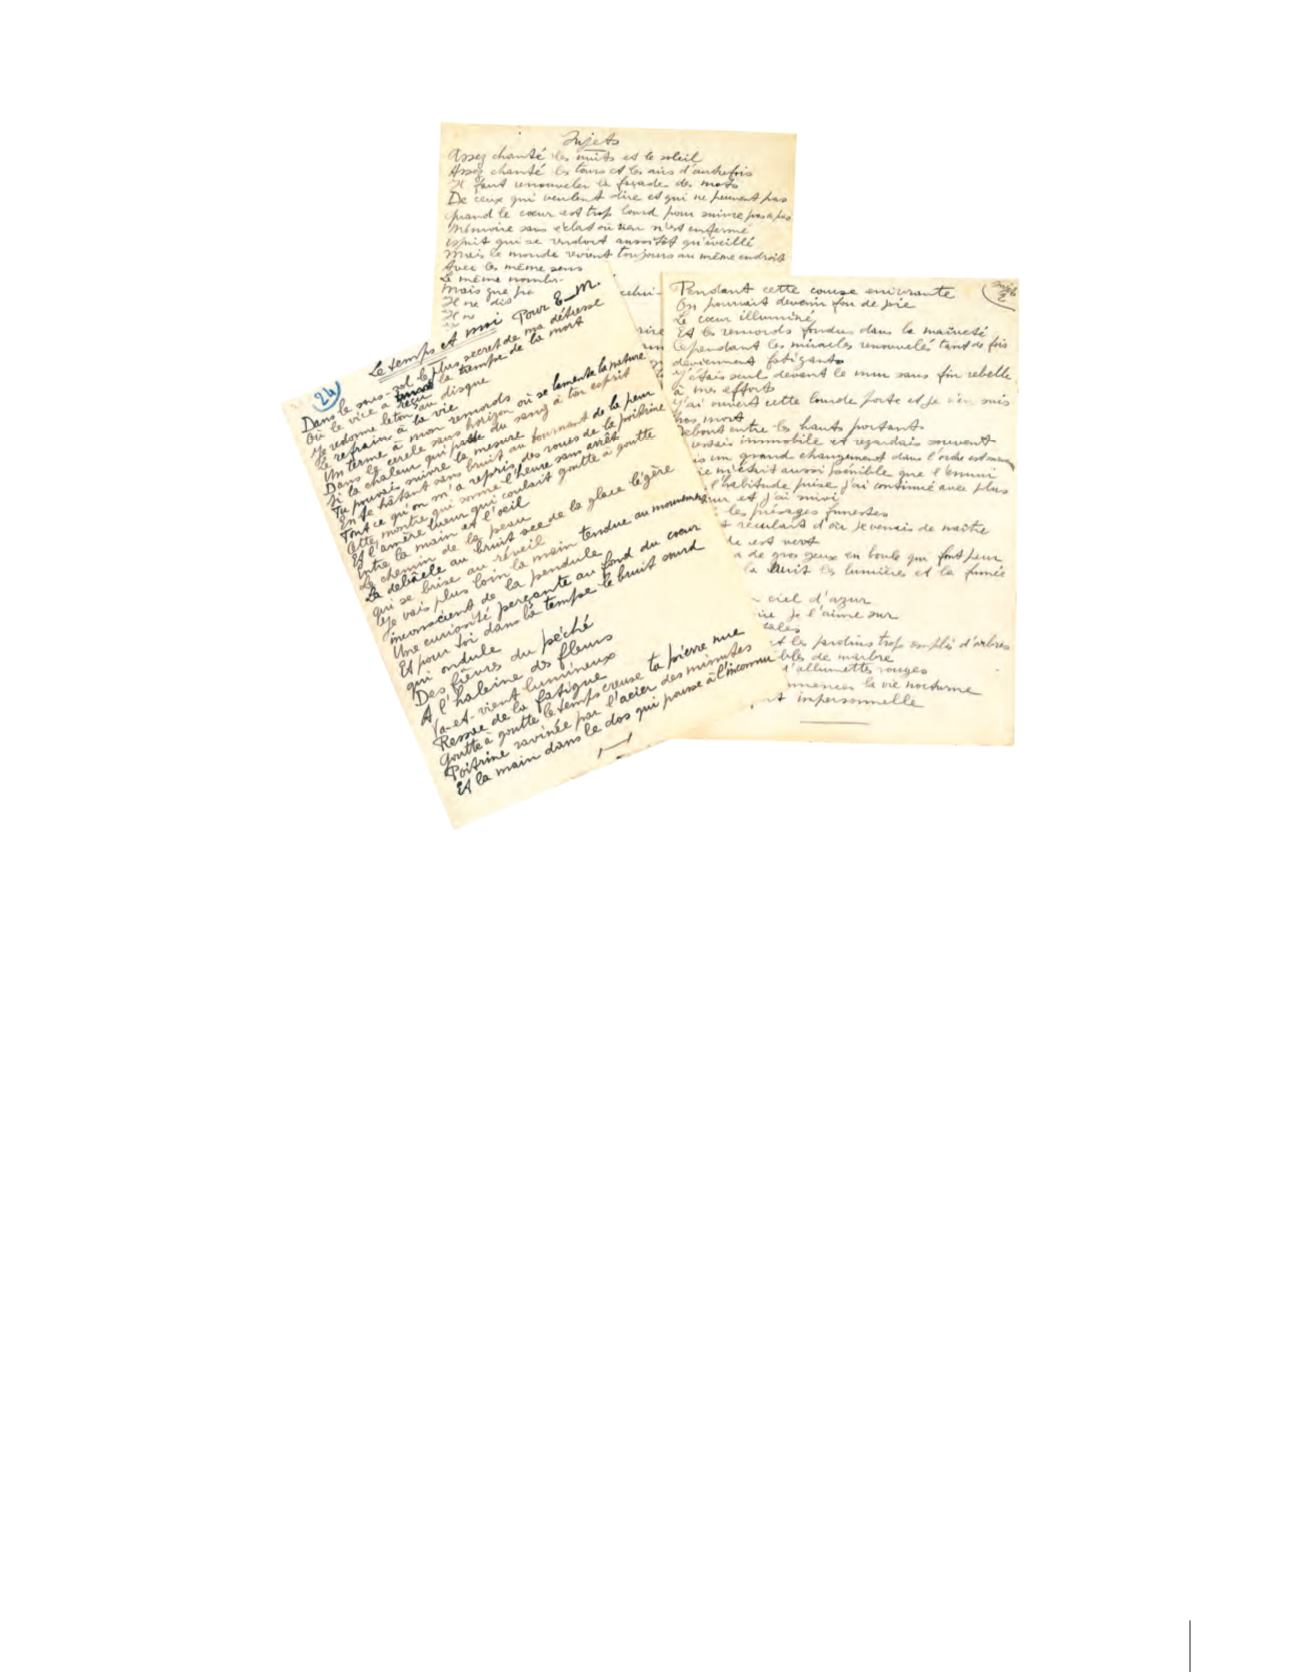 Sujets
Assez chanté les nuits et le soleil
Assez chanté les tours et les airs d'autrefois
Il faut renouveler la façade des mots
De ceux qui veulent dire et qui ne peuvent pas
quand le cœur est trop lourd pour suivre pas à pas
Mémoire sans éclat où rien n'est enfermé
esprit qui se rendort aussitôt qu'éveillé
Mais le monde revient toujours au même endroit
Avec les même sens
Le même nombr
Mais que
Il ne dis
Il ne
celui-
24
Le temps et moi Pour E—M.
Dans le sous-sol le plus secret de ma détresse
Où le vice a reçu la trempe de la mort
Je redonne le ton au disque
Le refrain à la vie
Un terme à mon remords
Dans le cercle sans horizon où se lamente la nature
Si la chaleur qui passe du sang à ton esprit
Tu pouvais suivre la mesure
En te hâtant sans bruit au tournant de la peur
Tout ce qu'on m'a repris des roues de la poitrine
Cette montre qui sonne l'heure sans arrêt
Et l'amère lueur qui coulait goutte à goutte
Entre la main et l'œil
Le chemin de la peau
La debâcle au bruit sec de la glace légère
qui se brise au réveil
Je vais plus loin la main tendue au mouvement
inconscient de la pendule
Une curiosité perçante au fond du cœur
Et pour toi dans la tempe le bruit sourd
qui ondule
Des fièvres du péché
A l'haleine des fleurs
Va-et-vient lumineux
Ressac de la fatigue
Goutte à goutte le temps creuse ta pierre nue
Poitrine ravinée par l'acier des minutes
Et la main dans le dos qui pousse à l'inconnu
Sujets
2
Pendant cette course enivrante
On pourrait devenir fou de joie
Le cœur illuminé
Et les remords fondus dans la naïveté
Cependant les miracles renouvelés tant de fois
deviennent fatigants
J'étais seul devant le mur sans fin rebelle
à mes efforts
J'ai ouvert cette lourde porte et je n'en suis
pas mort
Debout entre les hauts portants
restais immobile et regardais souvent
un grand changement dans l'ordre est
m'était aussi pénible que l'ennui
l'habitude prise j'ai continué avec plus
et j'ai suivi
les présages funestes
reculant d'où je venais de naître
est vert
a de gros yeux en boule qui font peur
la nuit les lumières et la fumée
ciel d'azur
je l'aime sur
les jardins trop emplis d'arbres
de marbre
d'allumettes rouges
la vie nocturne
impersonnelle